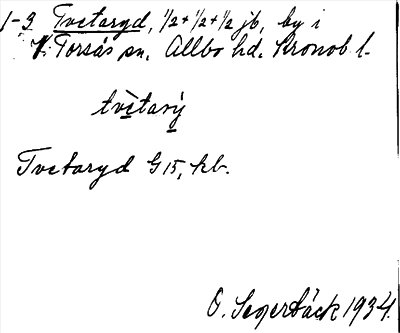 1-3 Tvetaryd, 1/2+1/2+1/2 jb, by i
V. Torsås sn, Allbo hd. Kronob l.
tvètarý
Tvetaryd G15, kb.
O. Segerbäck 1934.